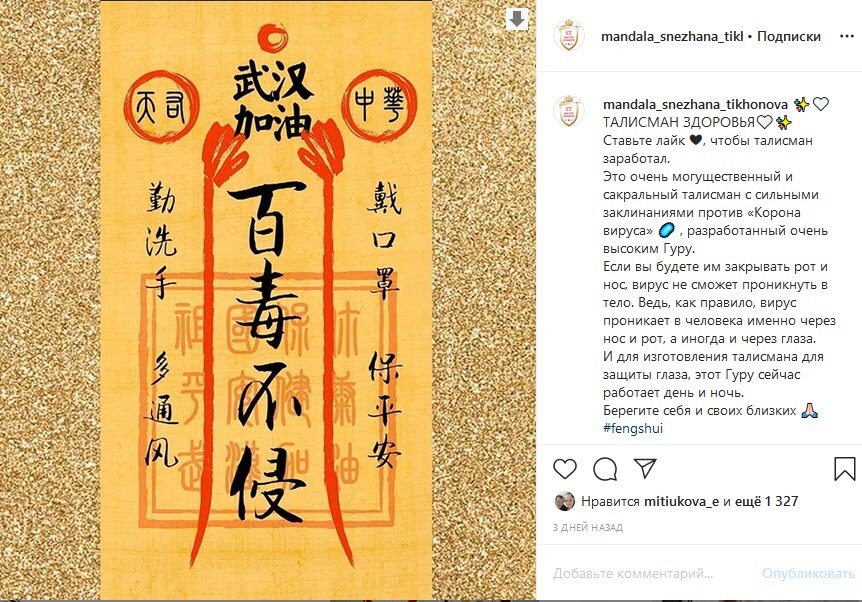 武汉
加油
天司
中華
百毒不侵
戴口罩 保平安
勤洗手 多通风
mandala_snezhana_tikl • Подписки
mandala_snezhana_tikhonova ✨♡
ТАЛИСМАН ЗДОРОВЬЯ♡✨
Ставьте лайк ♥, чтобы талисман
заработал.
Это очень могущественный и
сакральный талисман с сильными
заклинаниями против «Корона
вируса» 🦠 , разработанный очень
высоким Гуру.
Если вы будете им закрывать рот и
нос, вирус не сможет проникнуть в
тело. Ведь, как правило, вирус
проникает в человека именно через
нос и рот, а иногда и через глаза.
И для изготовления талисмана для
защиты глаза, этот Гуру сейчас
работает день и ночь.
Берегите себя и своих близких 🙏
#fengshui
Нравится mitiukova_e и ещё 1 327
3 ДНЕЙ НАЗАД
Добавьте комментарий...
Опубликовать